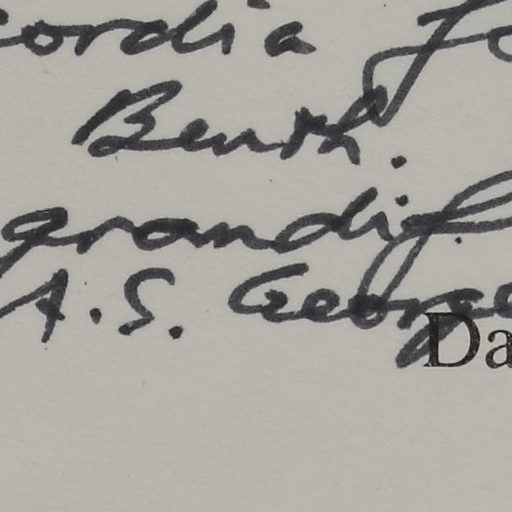 cordia fo
Benth.
grandif
A. S. George
Da